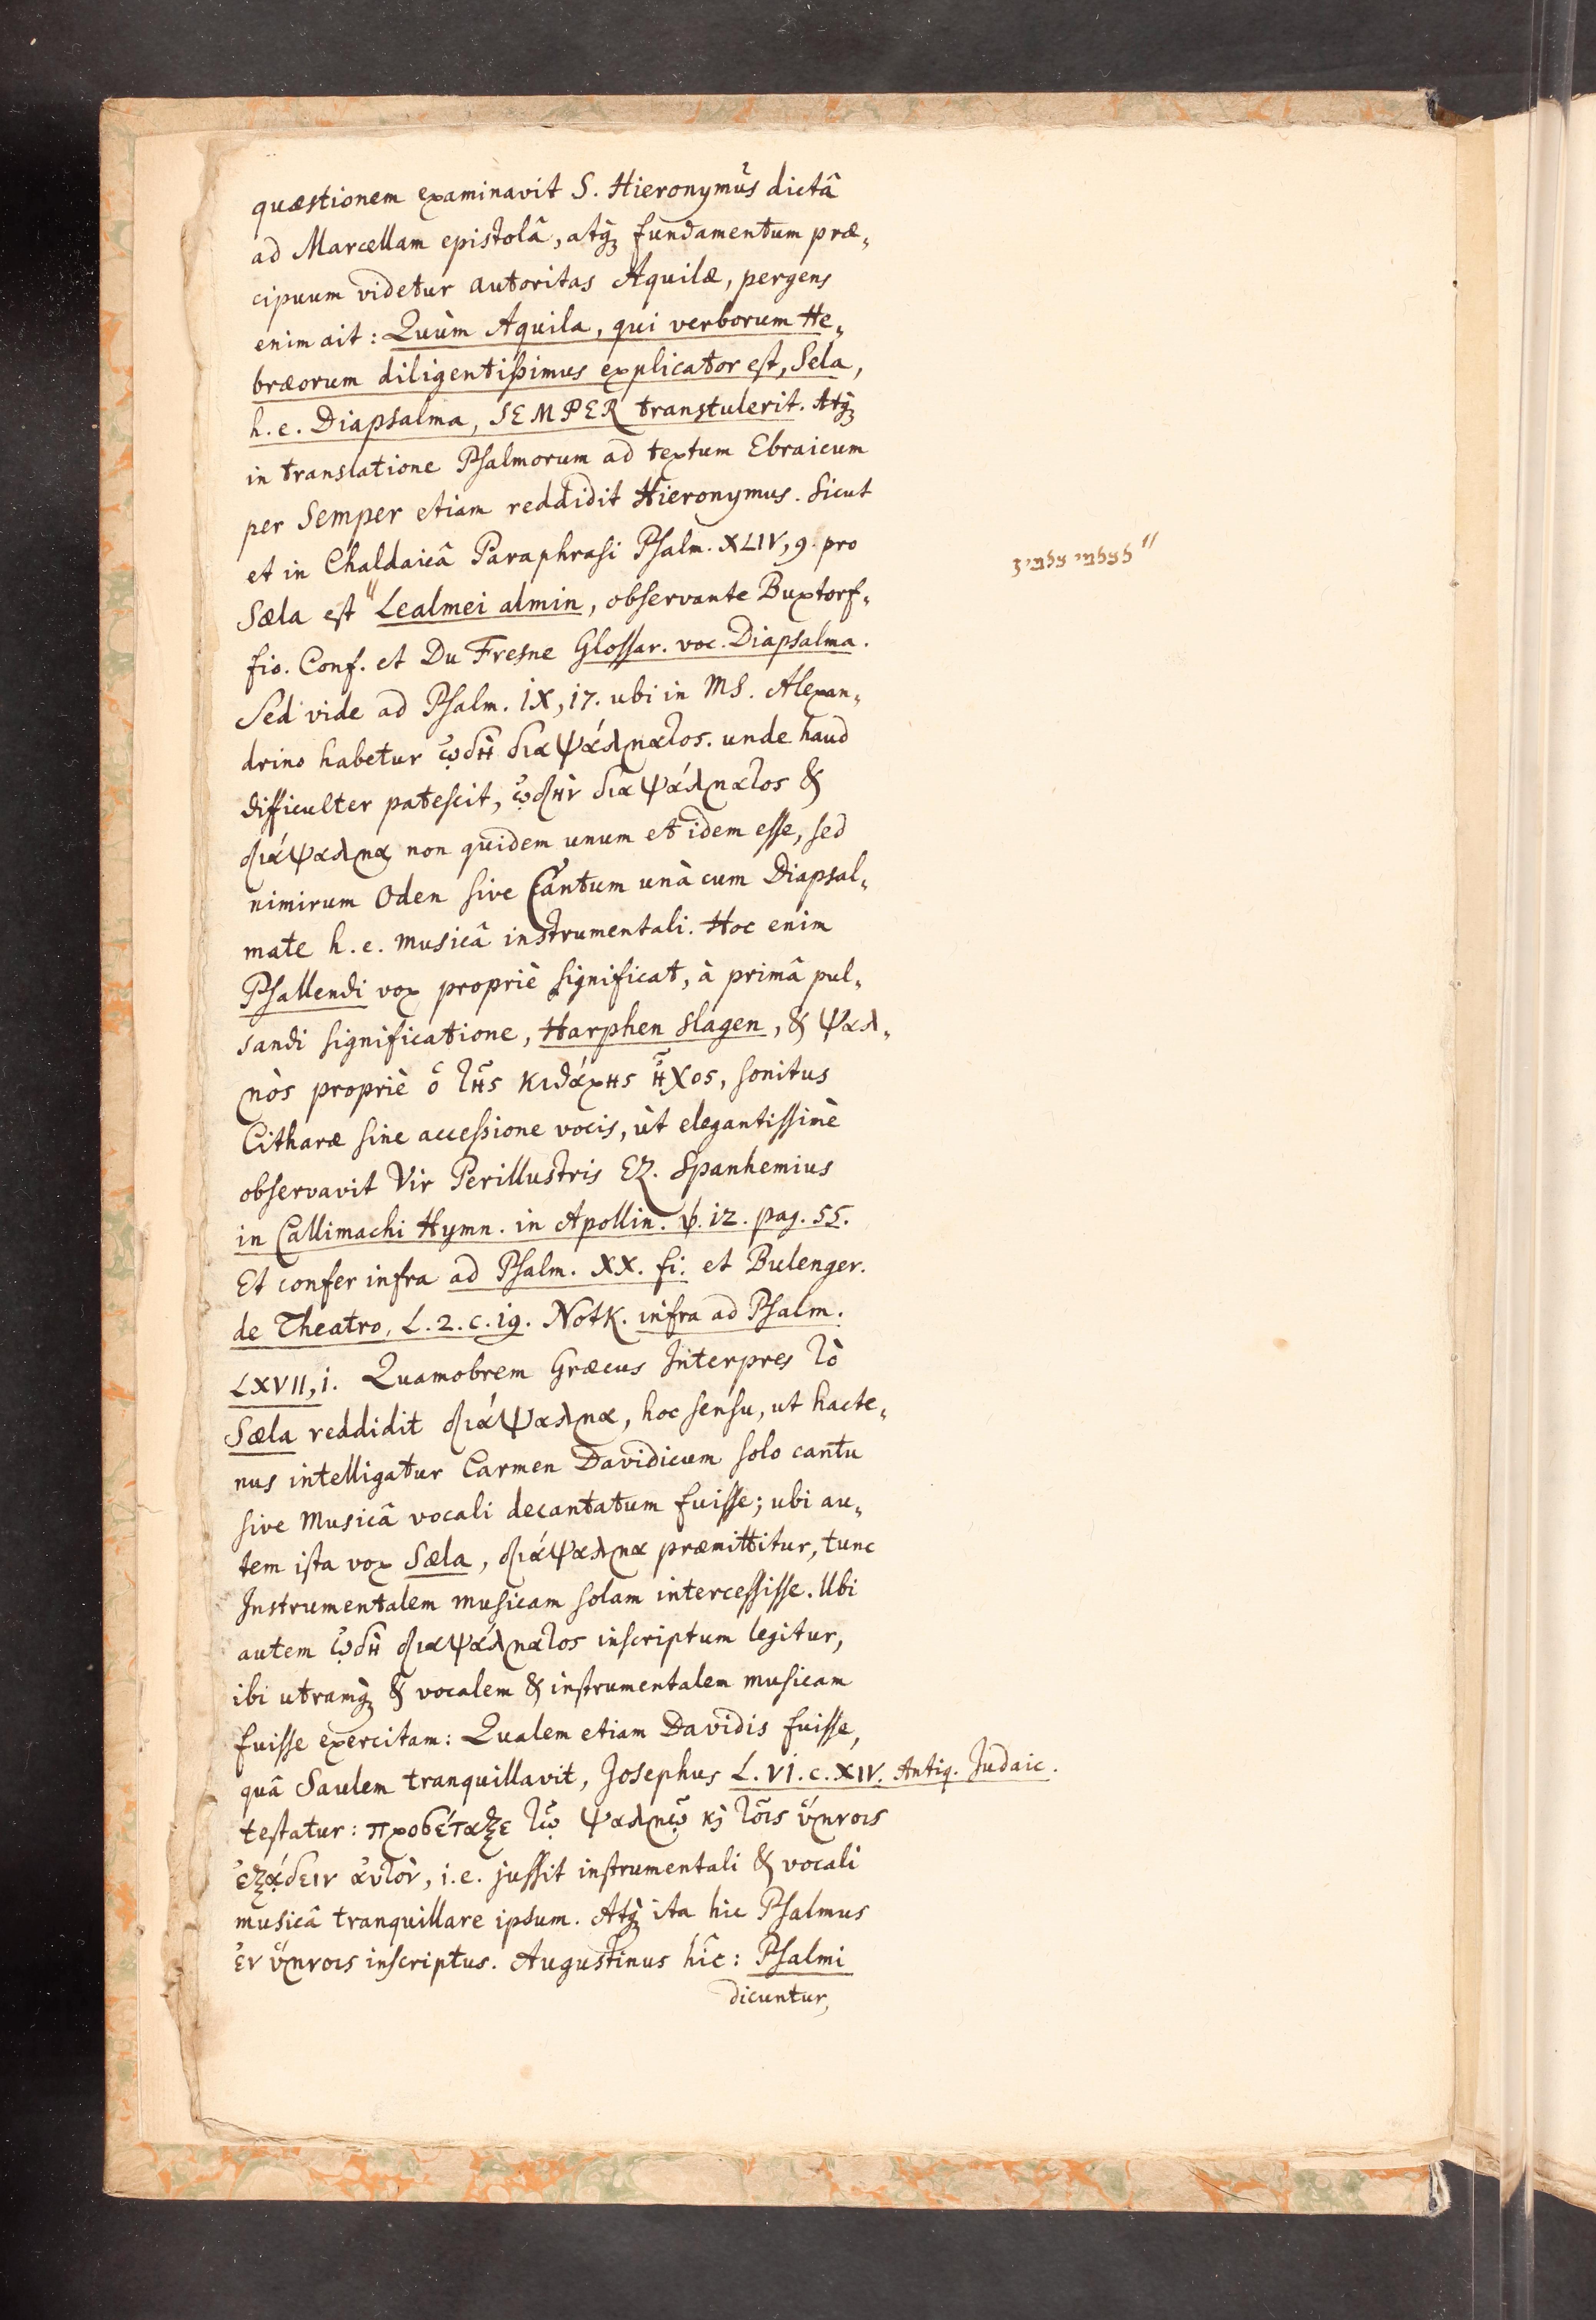 quæstionem examinavit S. Hieronymus dictâ
ad Marcellam epistolâ, atq; fundamentum præ„
cipuum videtur autoritas Aquilæ, pergens
enim ait: Quùm Aquila, qui verborum He„
bræorum diligentissimus explicator est, Sela,
h. e. Diapsalma, SEMPER transtulerit. Atq;
in translatione Psalmorum ad textum Ebraicum
per Semper etiam reddidit Hieronymus. Sicut
et in Chaldaicâ Paraphrasi Psalm. XLIV, 9. pro
Sæla est " Lealmei almin, observante Buxtorf„
fio. Conf. et Du Fresne Glossar. voc. Diapsalma.
Sed vide ad Psalm. IX, 17. ubi in MS. Alexan„
drino habetur ᾠδὴ διαψάλματος. unde haud
difficulter patescit, ᾠδὴν διαψάλματος &
διάψαλμα non quidem unum et idem esse, sed
nimirum Oden sive Cantum unà cum Diapsal„
mate h. e. musicâ instrumentali. Hoc enim
Psallendi vox propriè significat, à primâ pul„
sandi significatione, Harphen slagen, & ψαλ„
μὸς propriè ὁ τῆς κιθάρης ἦχος, sonitus
Citharæ sine accessione vocis, ùt elegantissimè
observavit Vir Perillustris Ez. Spanhemius
in Callimachi Hymn. in Apollin. ℣. 12. pag. 55.
Et confer infra ad Psalm. XX. fi. et Bulenger.
de Theatro, L. 2. c. 19. Notk. infra ad Psalm.
LXVII, 1. Quamobrem Græcus Interpres τὸ
Sæla reddidit διάψαλμα, hoc sensu, ut hacte„
nus intelligatur Carmen Davidicum solo cantu
sive Musicâ vocali decantatum fuisse; ubi au„
tem ista vox Sæla, διάψαλμα præmittitur, tunc
Instrumentalem musicam solam intercessisse. Ubi
autem ᾠδὴ διαψάλματος inscriptum legitur,
ibi utramq; & vocalem & instrumentalem musicam
fuisse exercitam: Qualem etiam Davidis fuisse,
quâ Saulem tranquillavit, Josephus L. VI. c. XIV. Antiq. Judaic.
testatur: προσέταξε τῷ ψαλμῷ κỳ τοῖς ὕμνοις
ἐξᾴδειν ἀυτὸν, i. e. jussit instrumentali & vocali
musicâ tranquillare ipsum. Atq; ita hic Psalmus
ἐν ὕμνοις inscriptus. Augustinus hîc: Psalmi
dicuntur,
" לעלמי עלמין